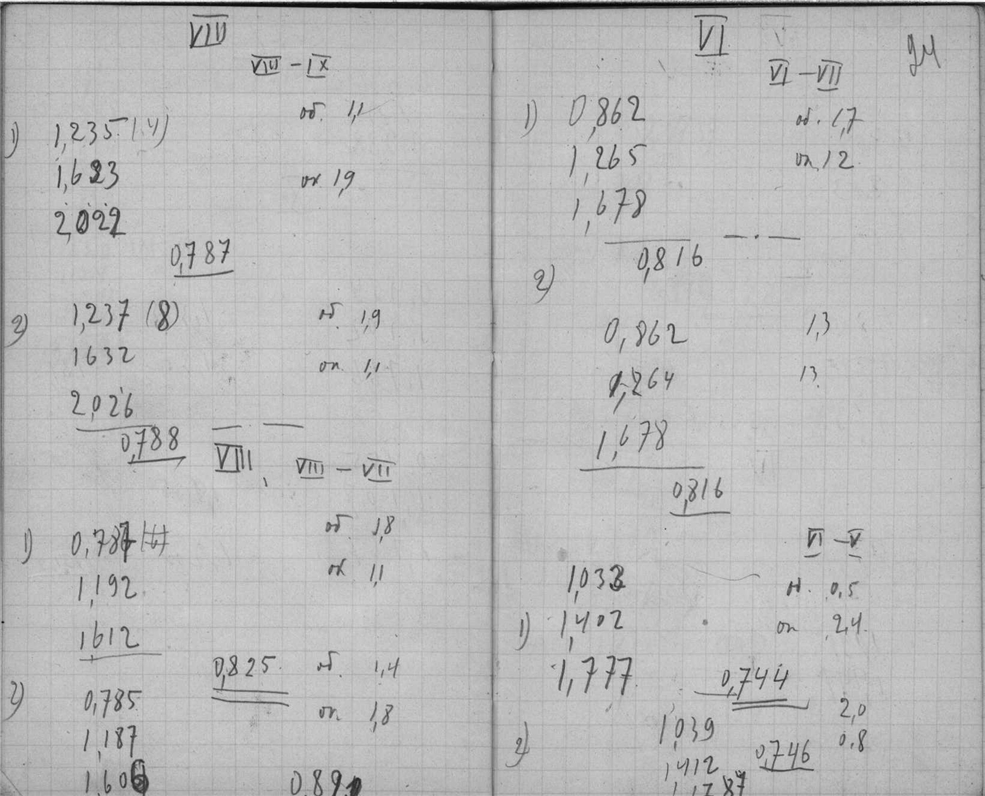 VIII
VIII – IX
об. 1,1
1) 1,235 (,4)
1,623
ок 1,9
2,022
0,787
2) 1,237 (8)
об. 1,9
1632
ок 1,1
2,026
0,788
VIII, VIII – VII
об 1,8
1) 0,787
ок 1,1
1,192
1,612
0,825
об 1,4
2) 0,785
ок 1,8
1,187
1,606
VI
24
VI – VII
1) 0,862
об. 1,7
1,265
ок 12
1,678
0,816
2)
0,862
1,3
1,264
13
1,678
0,816
VI – V
1,033
об. 0,5
1) 1,402
ок 2,4
1,777
0,744
2,0
1,039
0,8
2)
0,746
1,412